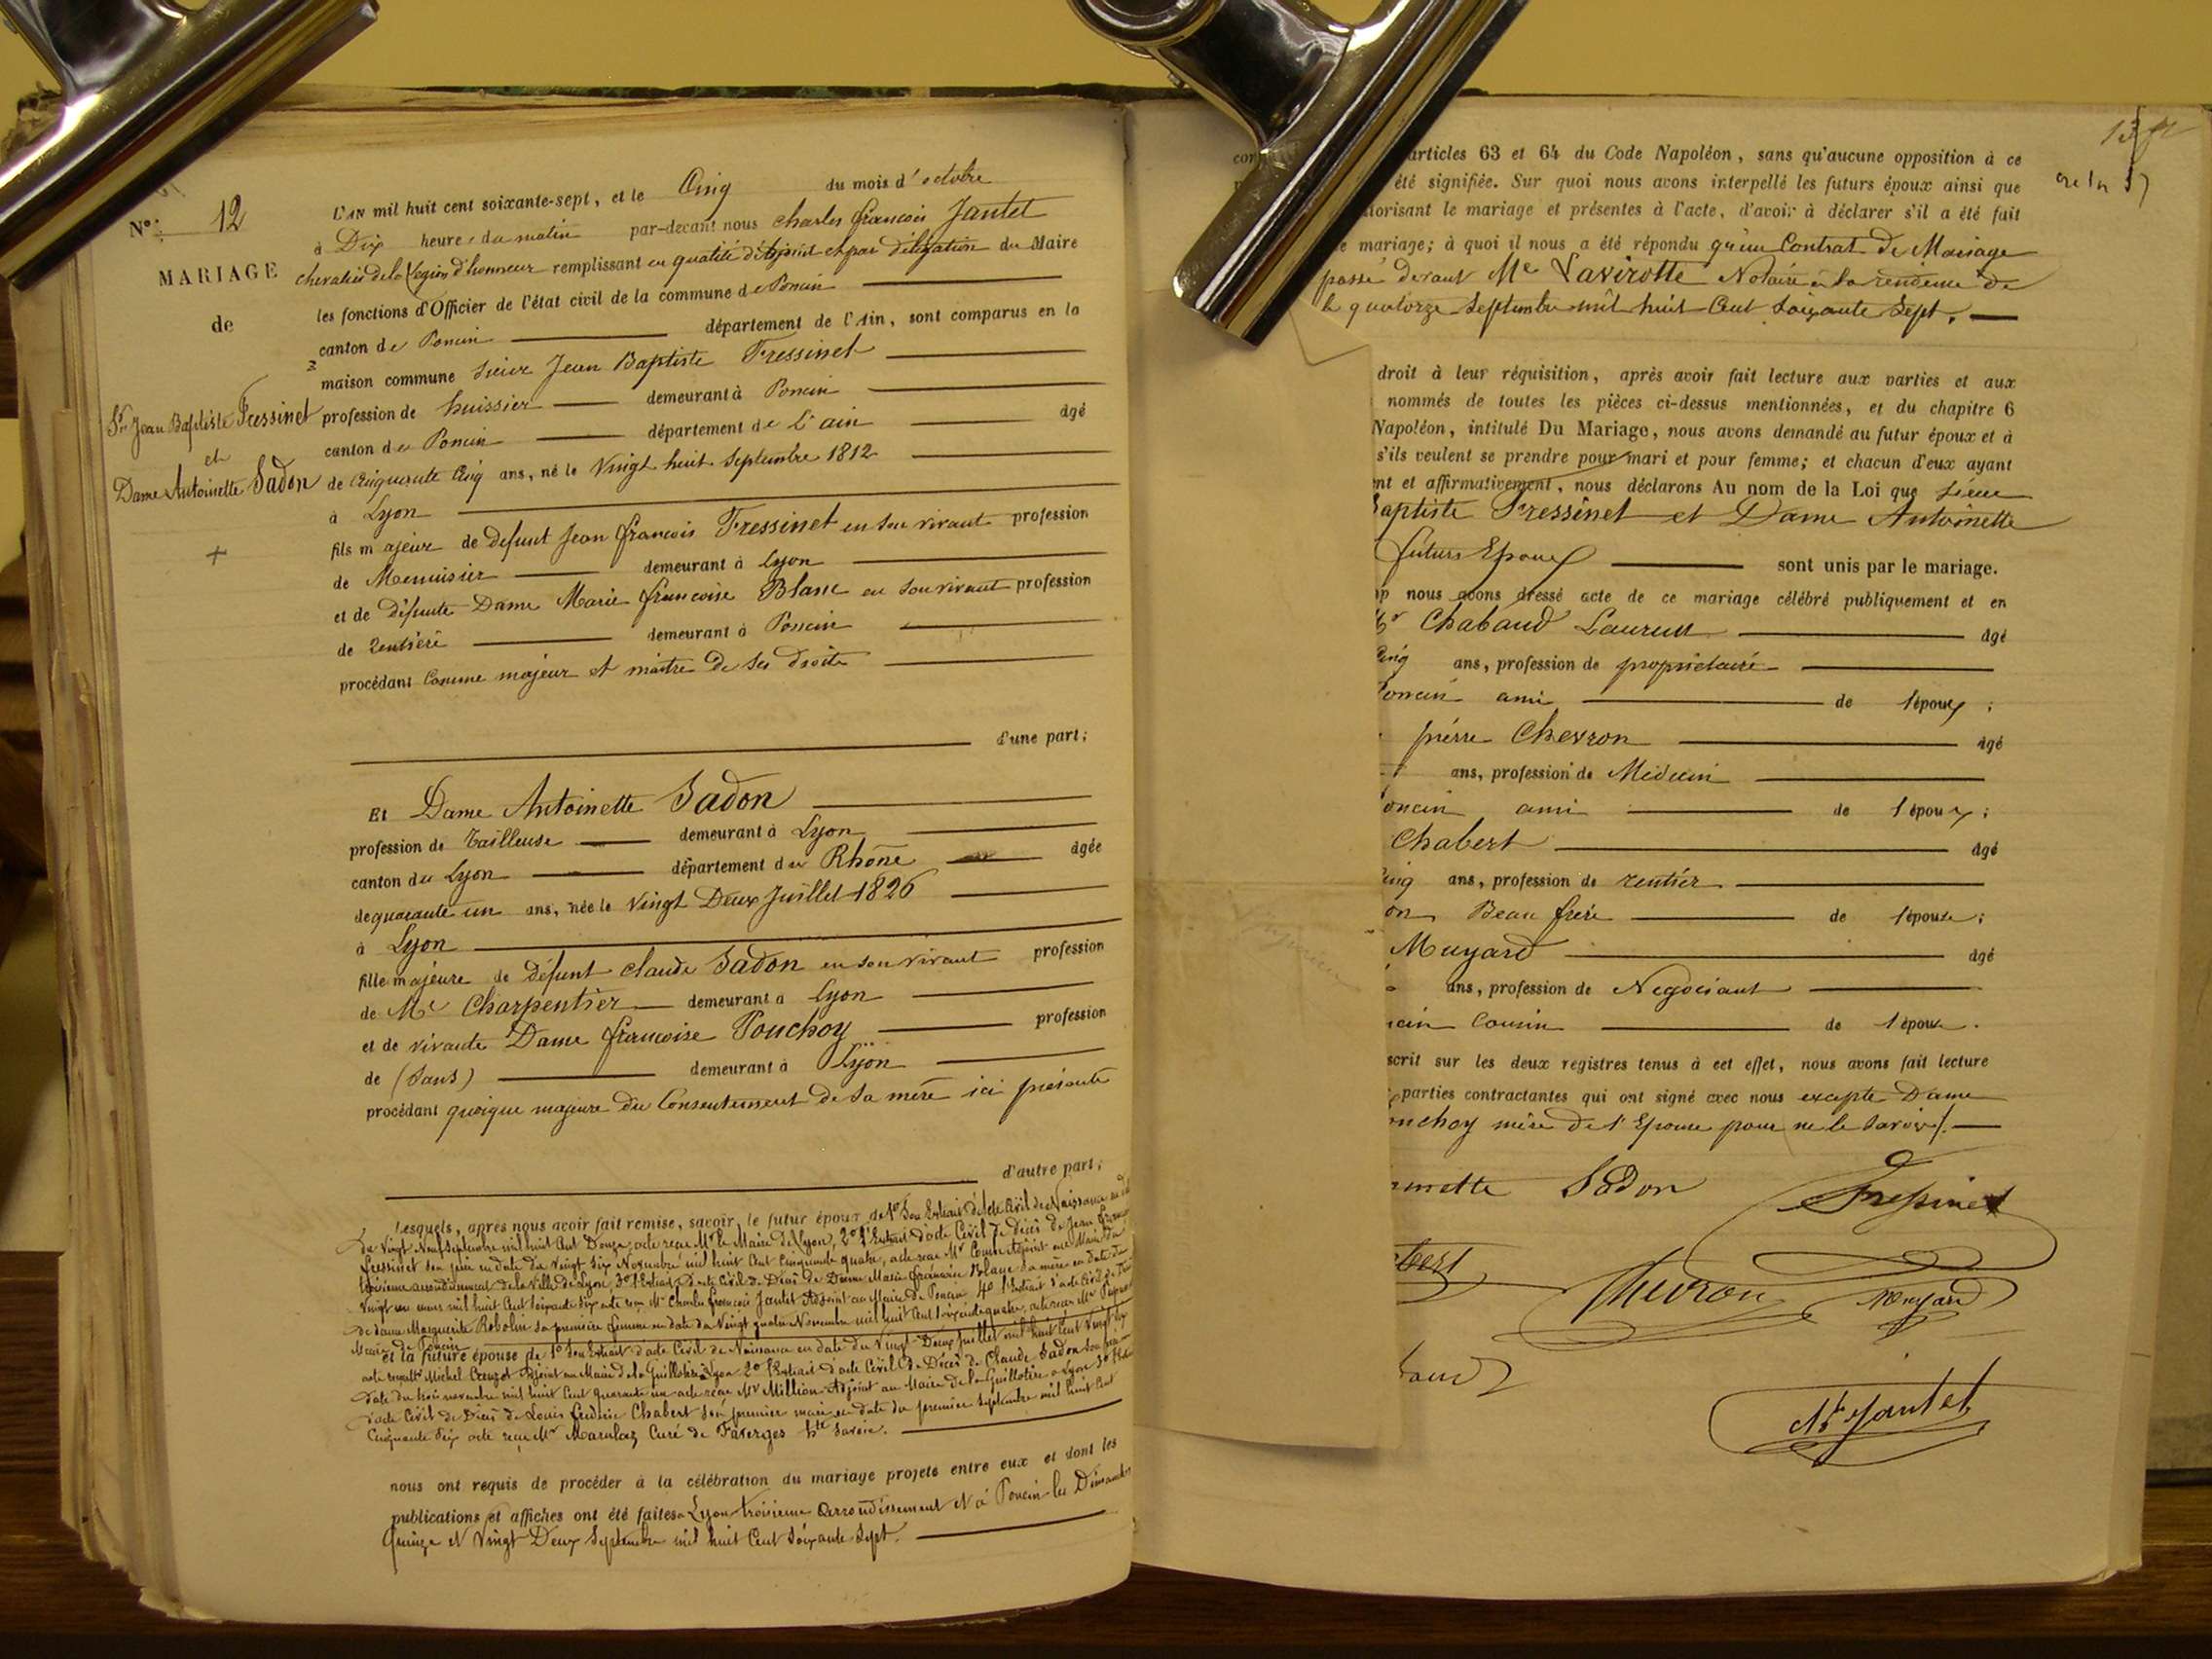 N°: 12
MARIAGE
de
Sr Jean Baptiste Fressinet
et
Dame Antoinette Sadon
L'AN mil huit cent soixante-sept, et le Cinq du mois d'octobre
à Dix heures du matin par-devant nous Charles françois Jantet
chevalier de la Légion d'honneur remplissant en qualité d'Adjoint et par délégation du Maire
les fonctions d'Officier de l'état civil de la commune de Poncin
canton de Poncin département de l'Ain, sont comparus en la
maison commune Sieur Jean Baptiste Fressinet
profession de huissier demeurant à Poncin
canton de Poncin département de L'ain âgé
de Cinquante Cinq ans, né le Vingt huit Septembre 1812
à Lyon
fils majeur de defunt Jean françois Fressinet en son vivant profession
de Menuisier demeurant à Lyon
et de Défunte Dame Marie françoise Blanc en son vivant profession
de rentière demeurant à Poncin
procédant Comme majeur et maitre de ses droits
d'une part;
Et Dame Antoinette Sadon
profession de Tailleuse demeurant à Lyon
canton de Lyon département du Rhône âgée
de quarante un ans, née le Vingt Deux Juillet 1826
à Lyon
fille majeure de Défunt Claude Sadon en son vivant profession
de Me Charpentier demeurant à Lyon
et de vivante Dame françoise Pouchoy profession
de (Sans) demeurant à Lyon
procédant quoique majeure du Consentement de sa mère ici présente
d'autre part;
Lesquels, après nous avoir fait remise, savoir, le futur époux de 1° Son Extrait d'acte Civil de Naissance
du Vingt Neuf Septembre mil huit Cent Douze, acte reçu Mr le Maire de Lyon, 2° l'Extrait d'acte Civil de Décès de Jean
Fressinet son père en date du Vingt Six Novembre mil huit Cent Cinquante quatre, acte reçu Mr Combe Adjoint au Maire du
troisième arrondissement de la Ville de Lyon, 3° l'Extrait d'acte Civil de Décès de Dame Marie françoise Blanc sa mère en date du
Vingt un mars mil huit Cent Soixante Six acte reçu Mr Charles françois Jantet Adjoint au Maire de Poncin 4° l'Extrait d'acte Civil de
de dame Marguerite Robolin sa première femme en date du Vingt quatre Novembre mil huit Cent Soixante quatre, acte reçu Mr
Maire de Poncin
et la future épouse de 1° Son Extrait d'acte Civil de Naissance en date du Vingt Deux Juillet mil huit Cent Vingt Six
acte reçu Mr Michel Creuzet Adjoint au Maire de la Guillotière Lyon 2° l'Extrait d'acte Civil de Décès de Claude Sadon son
date du trois novembre mil huit Cent quarante un acte reçu Mr Million Adjoint au Maire de la Guillotière à Lyon 3°
d'acte Civil de Décès de Louis frédéric Chabert son premier mari en date du premier Septembre mil huit Cent
Cinquante Six acte reçu Mr Marulaz Curé de Faverges hte Savoie.
nous ont requis de procéder à la célébration du mariage projeté entre eux et dont les
publications et affiches ont été faites à Lyon troisième Arrondissement et à Poncin les Dimanches
Quinze et Vingt Deux Septembre mil huit Cent Soixante Sept.
articles 63 et 64 du Code Napoléon, sans qu'aucune opposition à ce
été signifiée. Sur quoi nous avons interpellé les futurs époux ainsi que
torisant le mariage et présentes à l'acte, d'avoir à déclarer s'il a été fait
e mariage; à quoi il nous a été répondu qu'un Contrat de Mariage
passé devant Me Lavirotte Notaire à la résidence de
le quatorze Septembre mil huit Cent Soixante Sept.
droit à leur réquisition, après avoir fait lecture aux parties et aux
nommés de toutes les pièces ci-dessus mentionnées, et du chapitre 6
Napoléon, intitulé Du Mariage, nous avons demandé au futur époux et à
s'ils veulent se prendre pour mari et pour femme; et chacun d'eux ayant
nt et affirmativement, nous déclarons Au nom de la Loi que Sieur
aptiste Fressinet et Dame Antoinette
futurs Epoux sont unis par le mariage.
nous avons dressé acte de ce mariage célébré publiquement et en
Chabaud Laurent âgé
Cinq ans, profession de propriétaire
Poncin ami de l'époux;
pierre Chevron âgé
ans, profession de Médecin
oncin ami de l'époux;
Chabert âgé
cinq ans, profession de rentier
on Beau frère de l'épouse;
Muyard âgé
ans, profession de Négociant
ncin Cousin de l'épouse.
scrit sur les deux registres tenus à cet effet, nous avons fait lecture
parties contractantes qui ont signé avec nous excepté Dame
ouchoy mère de l'Epouse pour ne le savoir/.
inette Sadon Fressinet
bert Chevron Muyard
baud
Ch. Jantet